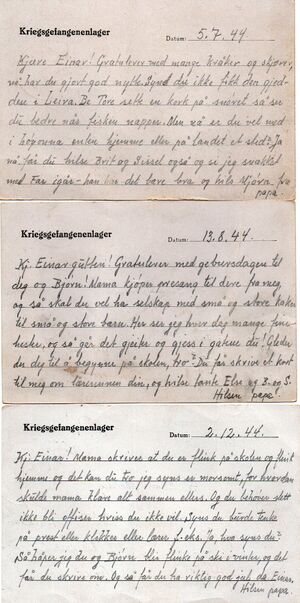 Kriegsgefangenenlager
Datum: 5.7.44
Kjære Einar! Gratulerer med mange kråker og skjører,
nå har du gjort god nytte. Synd du ikke fikk den gjed-
den i Leira. Be Tore sette en kork på snøret så ser
du bedre når fisken napper. Men nå er du vel ned
i enten hjemme eller på landet et sted? Ja
nå får du hilse Brit og Sissel også og si jeg snakket
med Far igår – han har det bare bra og hils Bjørn fra
papa.
Kriegsgefangenenlager
Datum: 13.8.44.
Kj. Einar gutten! Gratulerer med gebursdagen til
deg og Bjørn. Mama kjøper presang til dere fra meg
og så skal du vel ha selskap med små og store kaker
til små og store barn. Her ser jeg hver dag mange fine
hester, og så går det gjeiter og gjess i gatene du! Gleder
du deg til å begynne på skolen, tro? Du får skrive et kort
til meg om lærerinnen din, og hilse tante Else og B. og S.
Hilsen papa.
Kriegsgefangenenlager
Datum: 2.12.44.
Kj. Einar! Mama skriver at du er flink på skolen og flink
hjemme og det kan du tro jeg syns er morsomt, for hvordan
skulde mama klare alt sammen ellers. Og du behøver slett
ikke bli offiser hviss du ikke vil. Syns du burde tenke
på prest eller klokker eller lærer f.eks. Ja, hva syns du?
Så håper jeg du og Bjørn blir flinke på ski i vinter, og det
får du skrive om. Og så får du ha riktig god jul, da Einar.
Hilsen papa.